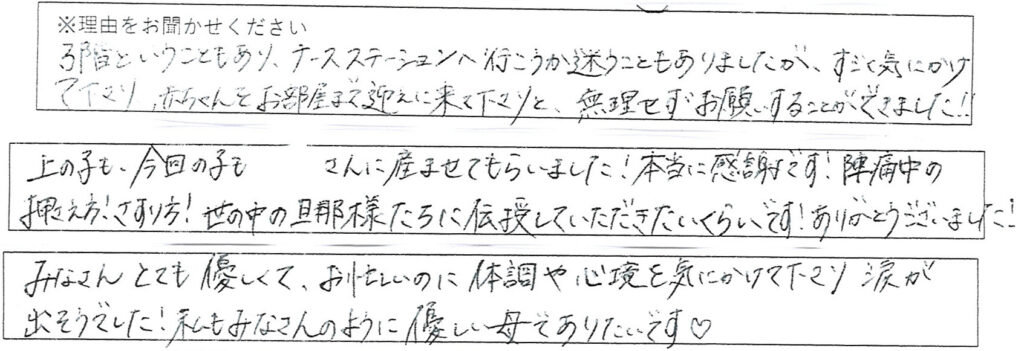 ※理由をお聞かせください
3階ということもあり、ナースステーションへ行こうか迷うこともありましたが、すごく気にかけ
て下さり、赤ちゃんをお部屋まで迎えに来て下さりと、無理せずお願いすることができました!!
上の子も、今回の子も さんに産ませてもらいました！本当に感謝です！陣痛中の
押さえ方！さすり方！世の中の旦那様たちに伝授していただきたいくらいです！ありがとうございました！
みなさんとても優しくて、お忙しいのに体調や心境を気にかけて下さり 涙が
出そうでした！私もみなさんのように優しい母でありたいです♡